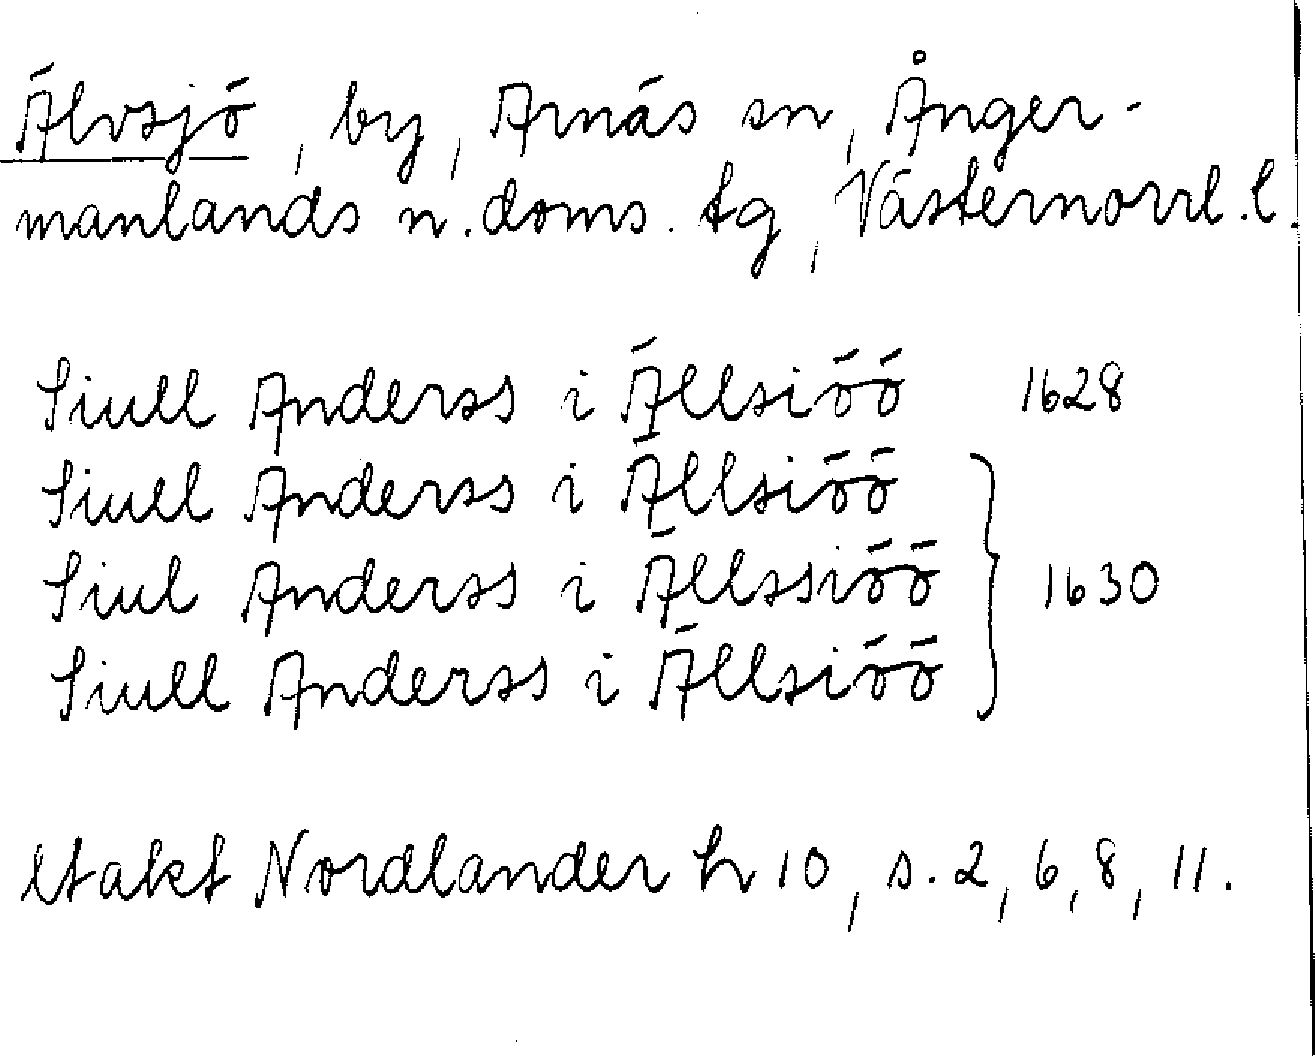 Älvsjö, by, Arnäs sn, Ånger-
manlands n. doms. tg, Västernorrl. l.
Siull Anderss i Ällsiöö 1628
Siull Anderss i Ällsiöö
Siul Anderss i Ällssiöö 1630
Siull Anderss i Ällsiöö
Utakt Nordlander h 10, s. 2, 6, 8, 11.